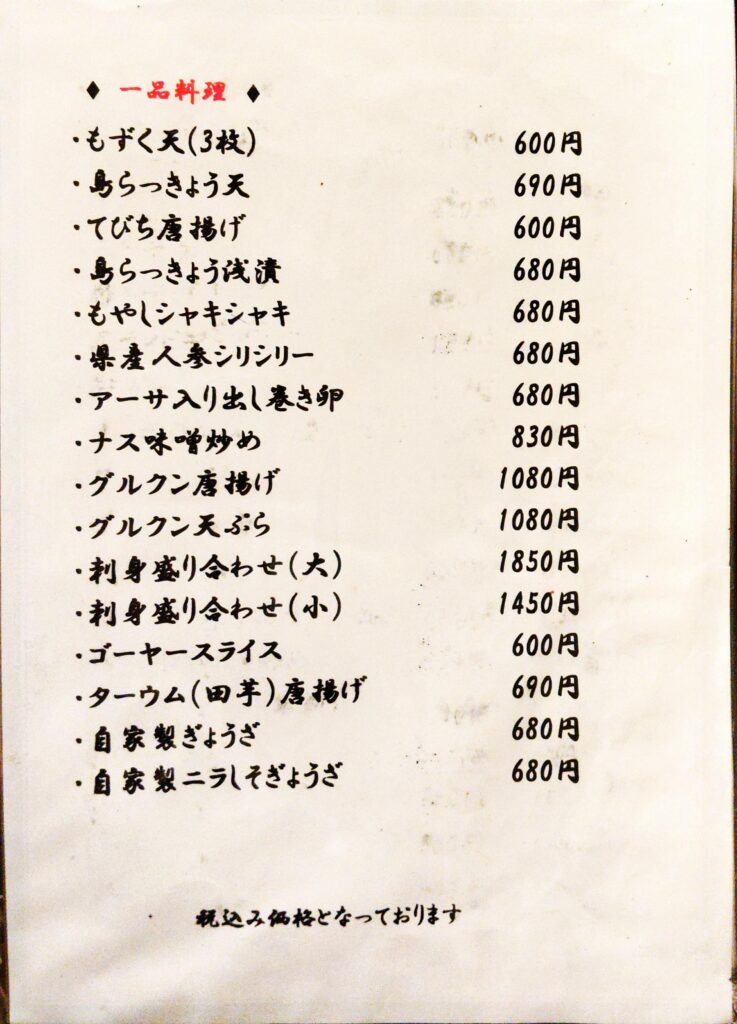 ♦ 一品料理 ♦
・もずく天(3枚) 600円
・島らっきょう天 690円
・てびち唐揚げ 600円
・島らっきょう浅漬 680円
・もやしシャキシャキ 680円
・県産人参シリシリー 680円
・アーサ入り出し巻き卵 680円
・ナス味噌炒め 830円
・グルクン唐揚げ 1080円
・グルクン天ぷら 1080円
・刺身盛り合わせ(大) 1850円
・刺身盛り合わせ(小) 1450円
・ゴーヤースライス 600円
・ターウム(田芋)唐揚げ 690円
・自家製ぎょうざ 680円
・自家製ニラしそぎょうざ 680円
税込み価格となっております